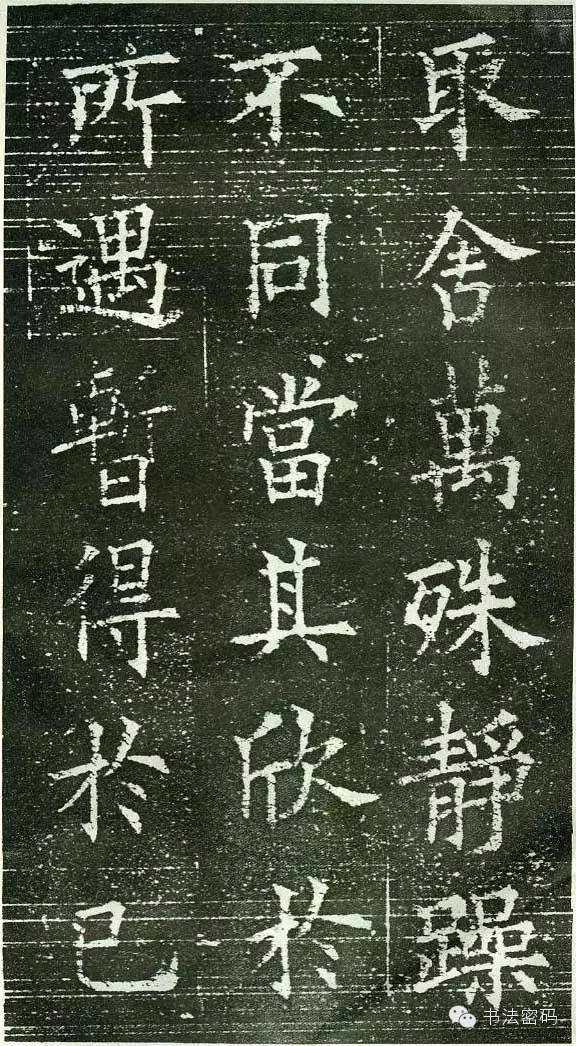 取舍萬殊靜躁
不同當其欣於
所遇暫得於己
书法密码